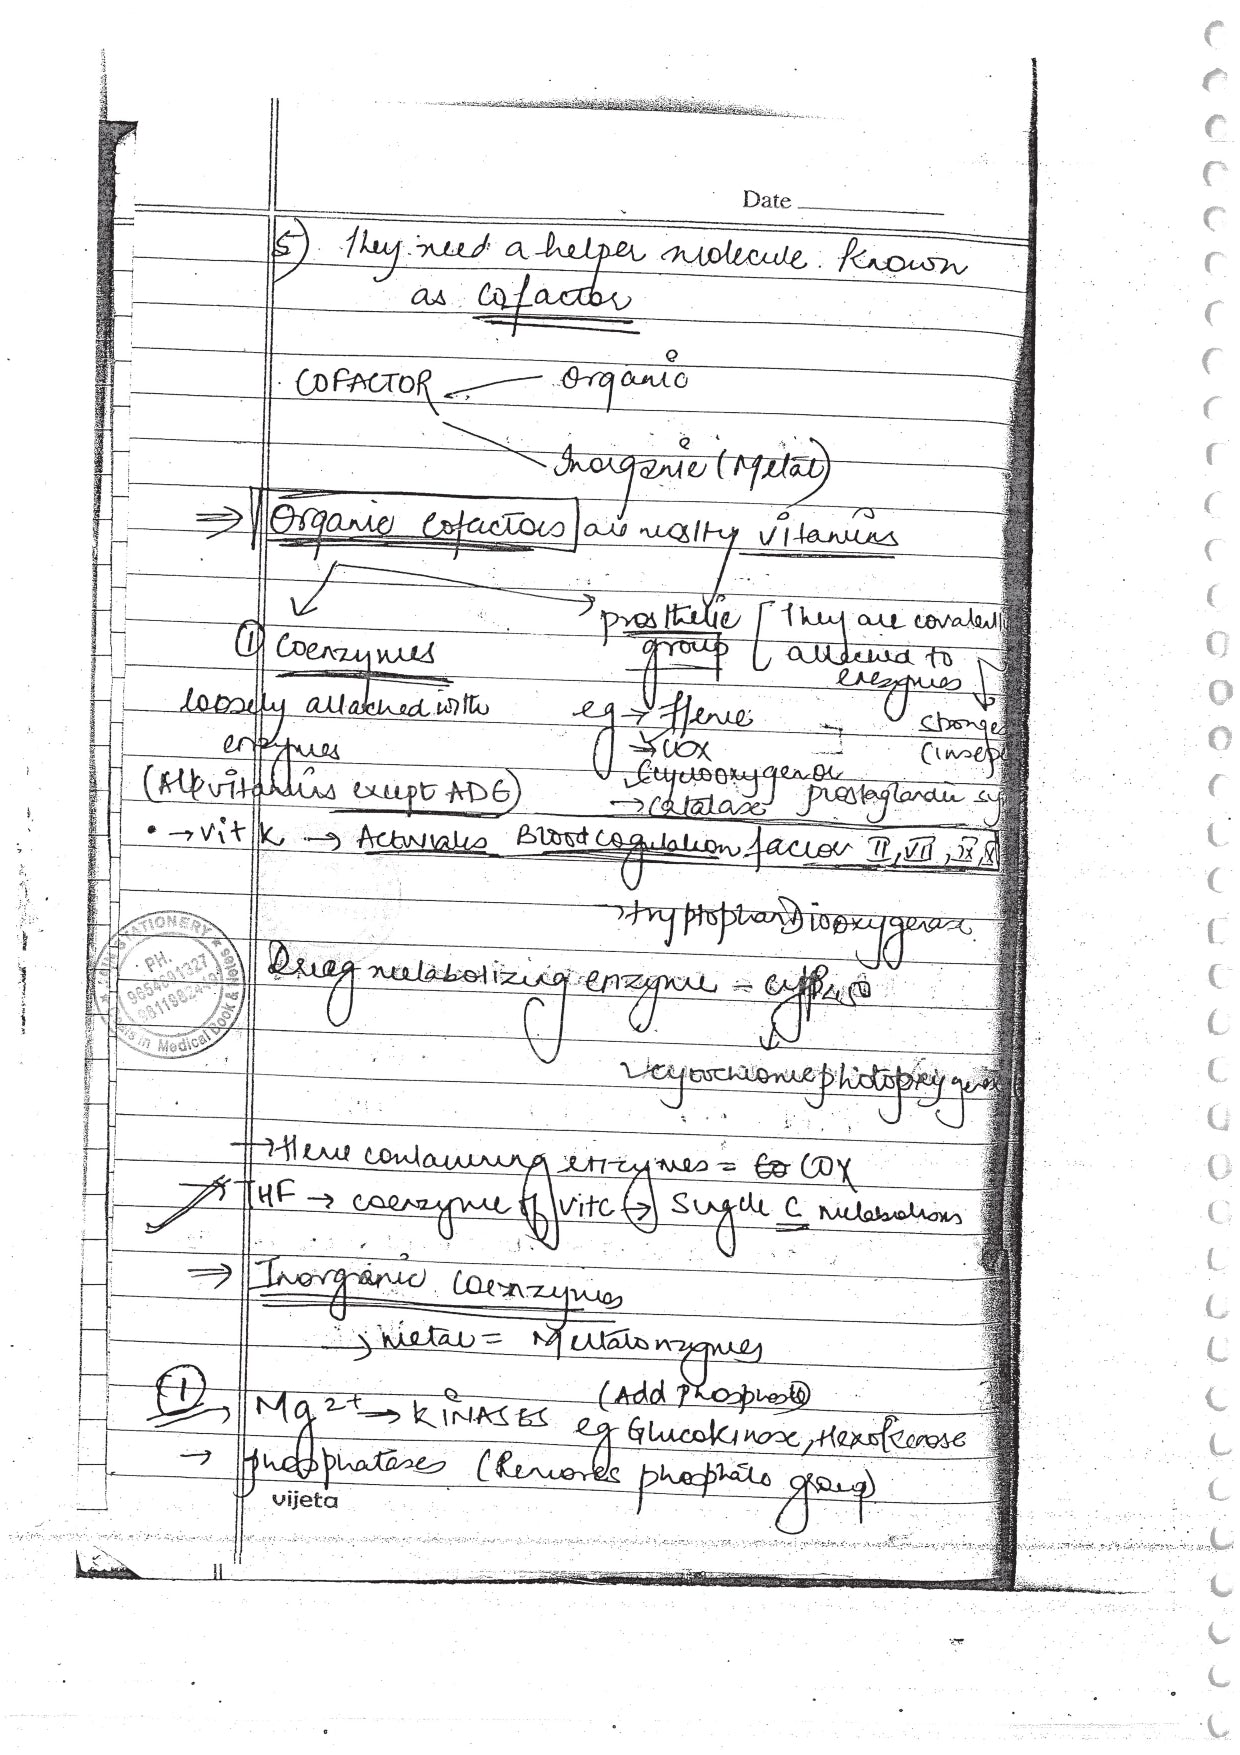 Date
5) They need a helper molecule. Known
as cofactor
COFACTOR
Organic
Inorganic (Metal)
⇒ Organic cofactors are mostly vitamins
① Coenzymes
loosely attached with
enzymes
(All vitamins except ADE)
→ prosthetic
group
[They are covalentl
attached to
enzymes
stronges
(insepe
eg → Heme
→ COX
Cyclooxygenase
prostaglandin sy
→ catalase
• → vit K → Activates Blood cogulation factor II, VII, IX, X
→ tryptophan Dioxygenase
Drug metabolizing enzyme - cyp450
→ Heme containing enzymes = COX
→ THF → coenzyme of vitC → Single C metabolisms
⇒ Inorganic coenzymes
→ metal = Metalonzymes
① Mg2+ → KINASES (Add phosphate)
eg Glucokinase, Hexokinase
→ phosphatases (Removes phosphate group)
vijeta
STATIONERY
PH.
in Medical Book &